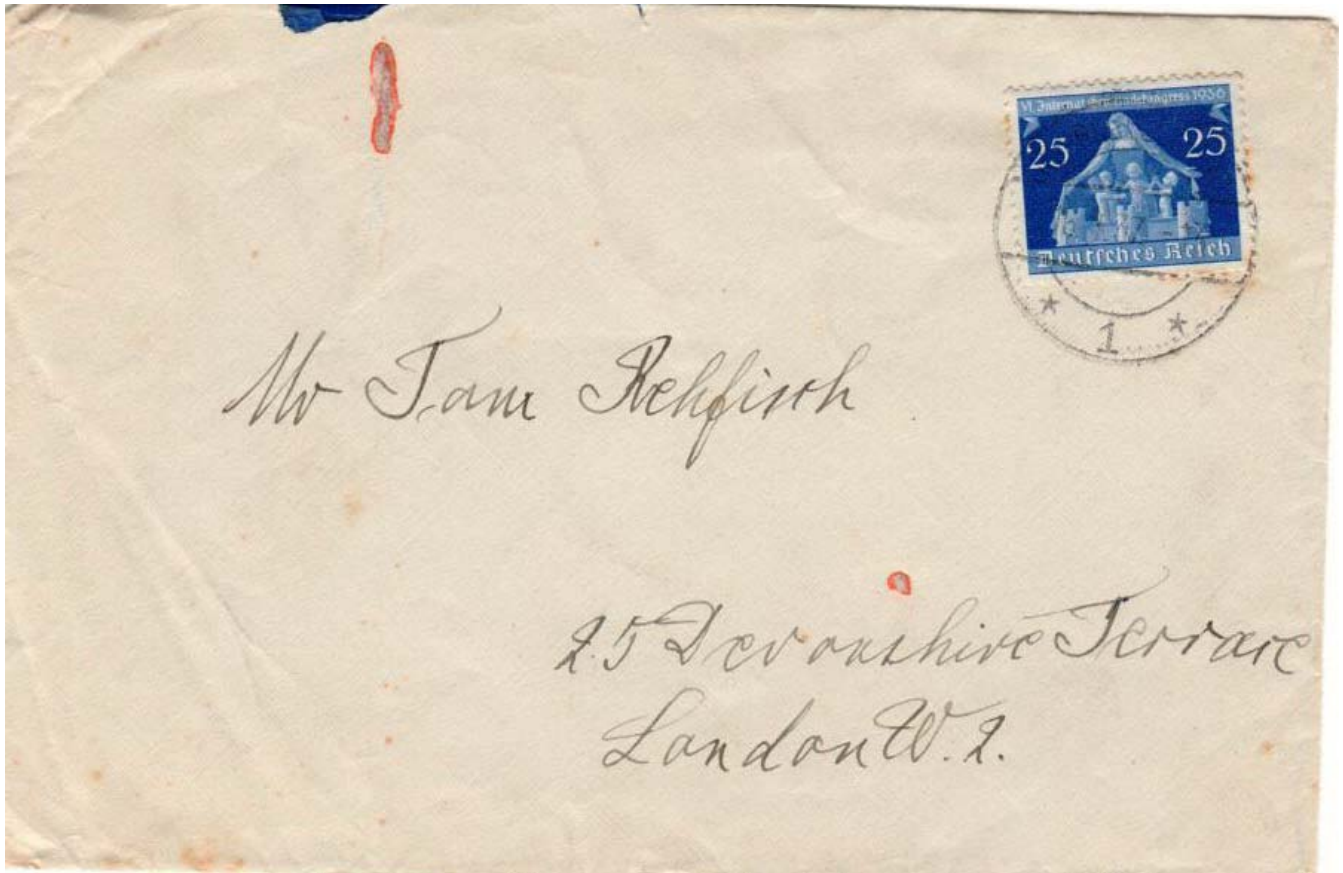 VI. Internat. Gemeindekongress 1936
25 25
Deutsches Reich
* 1 *
Mr Rehfisch
25 Devonshire Terrace
London W. 2.